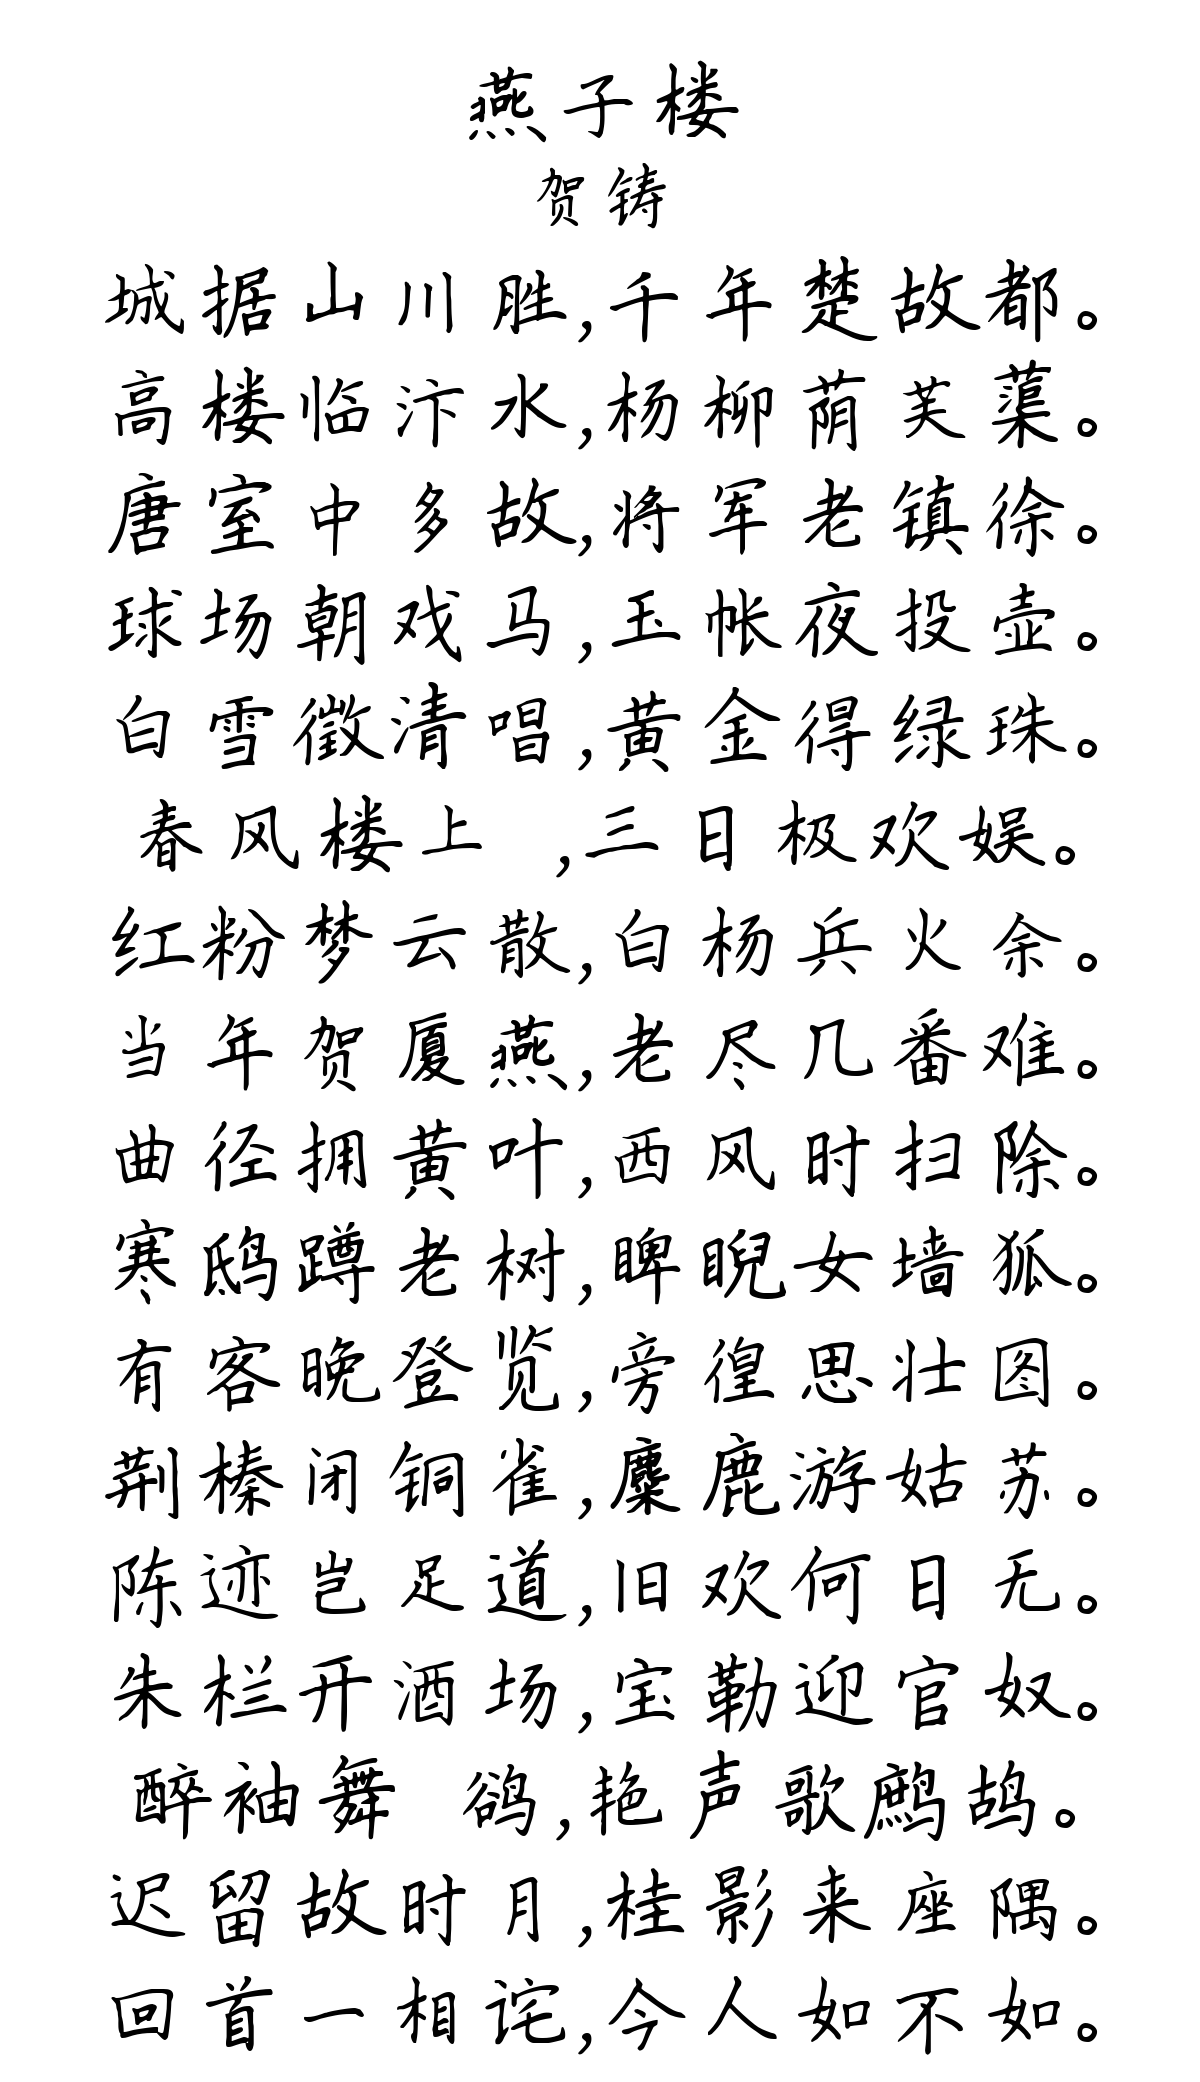 燕子楼
贺铸
城据山川胜,千年楚故都。
高楼临汴水,杨柳荫芙蕖。
唐室中多故,将军老镇徐。
球场朝戏马,玉帐夜投壶。
白雪徵清唱,黄金得绿珠。
春风楼上 ,三日极欢娱。
红粉梦云散,白杨兵火余。
当年贺厦燕,老尽几番难。
曲径拥黄叶,西风时扫除。
寒鸱蹲老树,睥睨女墙狐。
有客晚登览,旁徨思壮图。
荆榛闭铜雀,麋鹿游姑苏。
陈迹岂足道,旧欢何日无。
朱栏开酒场,宝勒迎官奴。
醉袖舞 鹆,艳声歌鹧鸪。
迟留故时月,桂影来座隅。
回首一相诧,今人如不如。